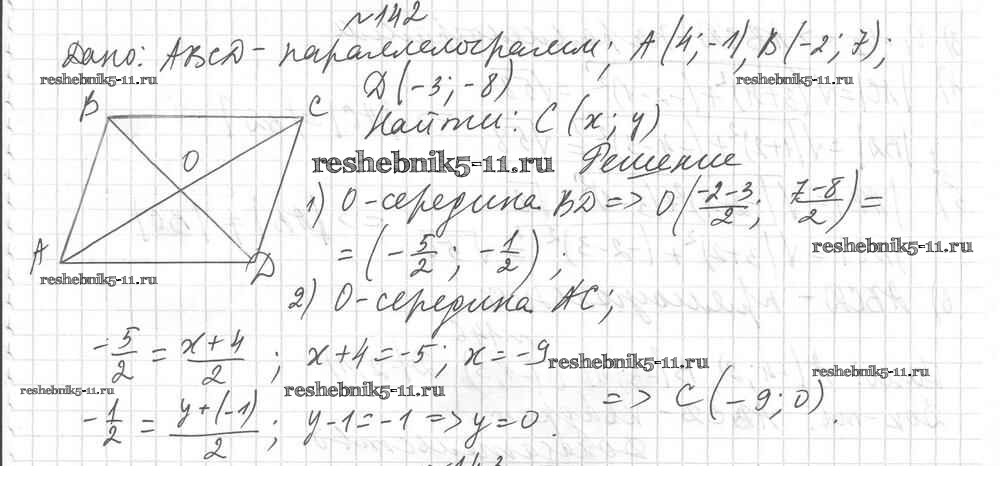 №142
Дано: ABCD - параллелограмм; A(4; -1), B(-2; 7);
reshebnik5-11.ru reshebnik5-11.ru
D(-3; -8)
Найти: C(x; y)
B C
O
A D
reshebnik5-11.ru
Решение
1) O - середина BD => O((-2-3)/2; (7-8)/2) =
reshebnik5-11.ru
= (-5/2; -1/2);
reshebnik5-11.ru
2) O - середина AC;
-5/2 = (x+4)/2; x+4 = -5; x = -9
reshebnik5-11.ru
reshebnik5-11.ru reshebnik5-11.ru reshebnik5-11.ru
=> C(-9; 0).
-1/2 = (y+(-1))/2; y-1 = -1 => y = 0.